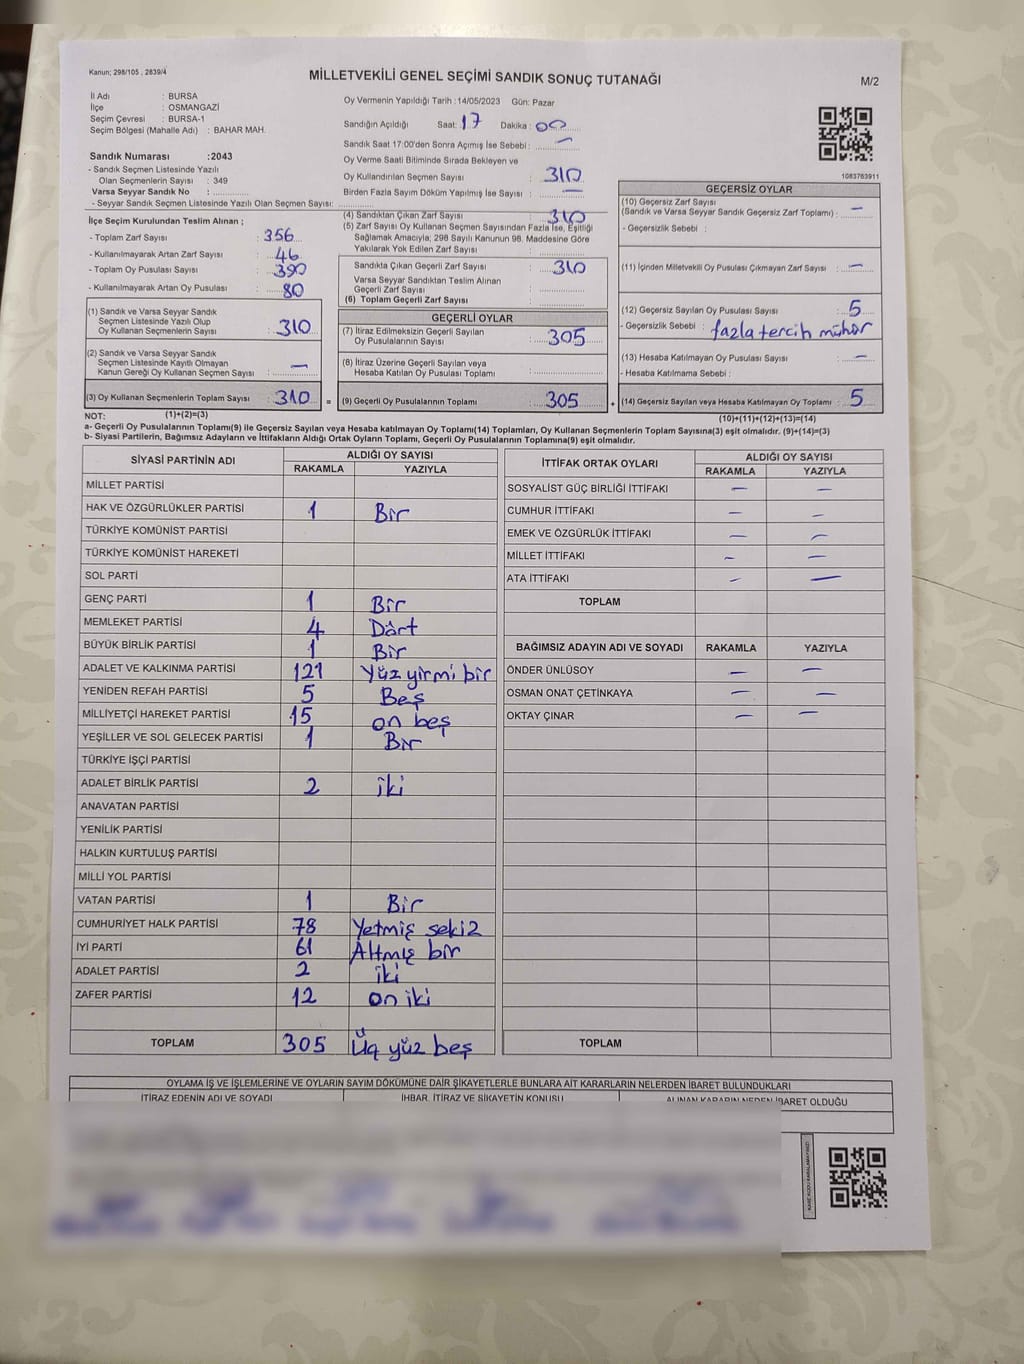 Kanun; 298/105 , 2839/4
MİLLETVEKİLİ GENEL SEÇİMİ SANDIK SONUÇ TUTANAĞI
M/2
İl Adı : BURSA
İlçe : OSMANGAZİ
Seçim Çevresi : BURSA-1
Seçim Bölgesi (Mahalle Adı) : BAHAR MAH.
Sandık Numarası :2043
- Sandık Seçmen Listesinde Yazılı
Olan Seçmenlerin Sayısı : 349
Varsa Seyyar Sandık No :
- Seyyar Sandık Seçmen Listesinde Yazılı Olan Seçmen Sayısı:
Oy Vermenin Yapıldığı Tarih :14/05/2023 Gün: Pazar
Sandığın Açıldığı Saat: 17 Dakika : 00
Sandık Saat 17:00'den Sonra Açılmış İse Sebebi : —
Oy Verme Saati Bitiminde Sırada Bekleyen ve
Oy Kullandırılan Seçmen Sayısı : 310
Birden Fazla Sayım Döküm Yapılmış İse Sayısı : —
1083763911
İlçe Seçim Kurulundan Teslim Alınan ;
- Toplam Zarf Sayısı : 356
- Kullanılmayarak Artan Zarf Sayısı : 46
- Toplam Oy Pusulası Sayısı : 390
- Kullanılmayarak Artan Oy Pusulası : 80
(1) Sandık ve Varsa Seyyar Sandık
Seçmen Listesinde Yazılı Olup
Oy Kullanan Seçmenlerin Sayısı : 310
(2) Sandık ve Varsa Seyyar Sandık
Seçmen Listesinde Kayıtlı Olmayan
Kanun Gereği Oy Kullanan Seçmen Sayısı : —
(3) Oy Kullanan Seçmenlerin Toplam Sayısı : 310 =
(4) Sandıktan Çıkan Zarf Sayısı : 310
(5) Zarf Sayısı Oy Kullanan Seçmen Sayısından Fazla İse, Eşitliği
Sağlamak Amacıyla; 298 Sayılı Kanunun 98. Maddesine Göre
Yakılarak Yok Edilen Zarf Sayısı :
Sandıkta Çıkan Geçerli Zarf Sayısı : 310
Varsa Seyyar Sandıktan Teslim Alınan
Geçerli Zarf Sayısı :
(6) Toplam Geçerli Zarf Sayısı :
GEÇERLİ OYLAR
(7) İtiraz Edilmeksizin Geçerli Sayılan
Oy Pusulalarının Sayısı : 305
(8) İtiraz Üzerine Geçerli Sayılan veya
Hesaba Katılan Oy Pusulası Toplamı :
(9) Geçerli Oy Pusulalarının Toplamı : 305 +
GEÇERSİZ OYLAR
(10) Geçersiz Zarf Sayısı
(Sandık ve Varsa Seyyar Sandık Geçersiz Zarf Toplamı) : —
- Geçersizlik Sebebi :
(11) İçinden Milletvekili Oy Pusulası Çıkmayan Zarf Sayısı : —
(12) Geçersiz Sayılan Oy Pusulası Sayısı : 5
- Geçersizlik Sebebi : fazla tercih mühür
(13) Hesaba Katılmayan Oy Pusulası Sayısı : —
- Hesaba Katılmama Sebebi :
(14) Geçersiz Sayılan veya Hesaba Katılmayan Oy Toplamı : 5
NOT: (1)+(2)=(3)
(10)+(11)+(12)+(13)=(14)
a- Geçerli Oy Pusulalarının Toplamı(9) ile Geçersiz Sayılan veya Hesaba katılmayan Oy Toplamı(14) Toplamları, Oy Kullanan Seçmenlerin Toplam Sayısına(3) eşit olmalıdır. (9)+(14)=(3)
b- Siyasi Partilerin, Bağımsız Adayların ve İttifakların Aldığı Ortak Oyların Toplamı, Geçerli Oy Pusulalarının Toplamına(9) eşit olmalıdır.
SİYASİ PARTİNİN ADI ALDIĞI OY SAYISI
RAKAMLA YAZIYLA
MİLLET PARTİSİ
HAK VE ÖZGÜRLÜKLER PARTİSİ 1 Bir
TÜRKİYE KOMÜNİST PARTİSİ
TÜRKİYE KOMÜNİST HAREKETİ
SOL PARTİ
GENÇ PARTİ 1 Bir
MEMLEKET PARTİSİ 4 Dört
BÜYÜK BİRLİK PARTİSİ 1 Bir
ADALET VE KALKINMA PARTİSİ 121 Yüz yirmi bir
YENİDEN REFAH PARTİSİ 5 Beş
MİLLİYETÇİ HAREKET PARTİSİ 15 on beş
YEŞİLLER VE SOL GELECEK PARTİSİ 1 Bir
TÜRKİYE İŞÇİ PARTİSİ
ADALET BİRLİK PARTİSİ 2 iki
ANAVATAN PARTİSİ
YENİLİK PARTİSİ
HALKIN KURTULUŞ PARTİSİ
MİLLİ YOL PARTİSİ
VATAN PARTİSİ 1 Bir
CUMHURİYET HALK PARTİSİ 78 Yetmiş sekiz
İYİ PARTİ 61 Altmış bir
ADALET PARTİSİ 2 iki
ZAFER PARTİSİ 12 on iki
TOPLAM 305 Üç yüz beş
İTTİFAK ORTAK OYLARI ALDIĞI OY SAYISI
RAKAMLA YAZIYLA
SOSYALİST GÜÇ BİRLİĞİ İTTİFAKI — —
CUMHUR İTTİFAKI — —
EMEK VE ÖZGÜRLÜK İTTİFAKI — —
MİLLET İTTİFAKI — —
ATA İTTİFAKI — —
TOPLAM
BAĞIMSIZ ADAYIN ADI VE SOYADI RAKAMLA YAZIYLA
ÖNDER ÜNLÜSOY — —
OSMAN ONAT ÇETİNKAYA — —
OKTAY ÇINAR — —
TOPLAM
OYLAMA İŞ VE İŞLEMLERİNE VE OYLARIN SAYIM DÖKÜMÜNE DAİR ŞİKAYETLERLE BUNLARA AİT KARARLARIN NELERDEN İBARET BULUNDUKLARI
İTİRAZ EDENİN ADI VE SOYADI İHBAR, İTİRAZ VE ŞİKAYETİN KONUSU ALINAN KARARIN NEDEN İBARET OLDUĞU
KARE KODU KARALAMAYINIZ!